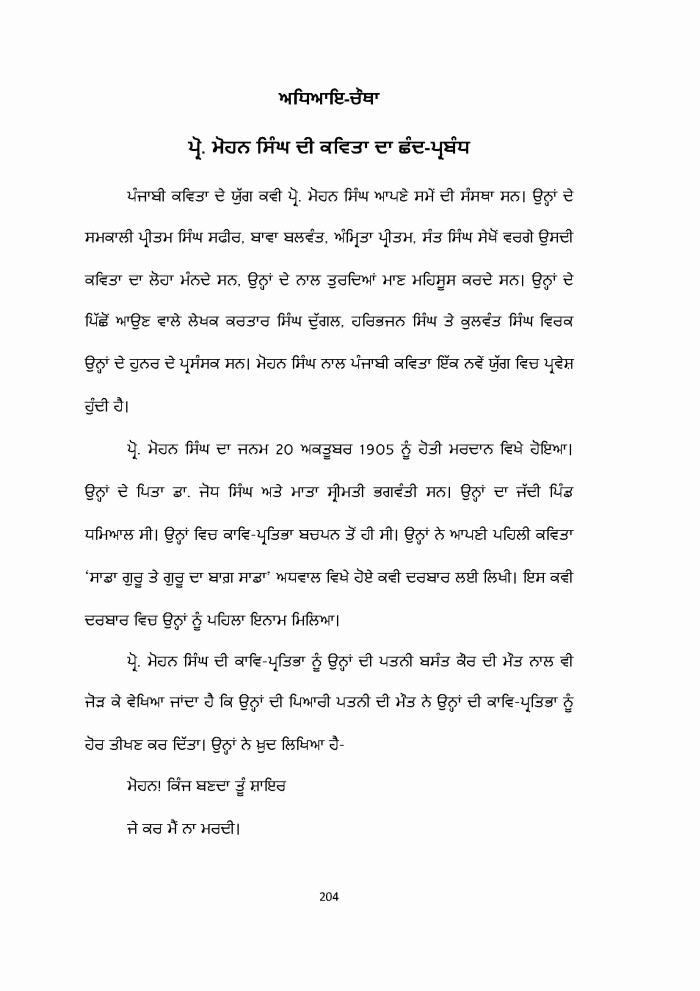 ਅਧਿਆਇ-ਚੌਥਾ
ਪ੍ਰੋ. ਮੋਹਨ ਸਿੰਘ ਦੀ ਕਵਿਤਾ ਦਾ ਛੰਦ-ਪ੍ਰਬੰਧ
ਪੰਜਾਬੀ ਕਵਿਤਾ ਦੇ ਯੁੱਗ ਕਵੀ ਪ੍ਰੋ. ਮੋਹਨ ਸਿੰਘ ਆਪਣੇ ਸਮੇਂ ਦੀ ਸੰਸਥਾ ਸਨ। ਉਨ੍ਹਾਂ ਦੇ
ਸਮਕਾਲੀ ਪ੍ਰੀਤਮ ਸਿੰਘ ਸਫੀਰ, ਬਾਵਾ ਬਲਵੰਤ, ਅੰਮ੍ਰਿਤਾ ਪ੍ਰੀਤਮ, ਸੰਤ ਸਿੰਘ ਸੇਖੋਂ ਵਰਗੇ ਉਸਦੀ
ਕਵਿਤਾ ਦਾ ਲੋਹਾ ਮੰਨਦੇ ਸਨ, ਉਨ੍ਹਾਂ ਦੇ ਨਾਲ ਤੁਰਦਿਆਂ ਮਾਣ ਮਹਿਸੂਸ ਕਰਦੇ ਸਨ। ਉਨ੍ਹਾਂ ਦੇ
ਪਿੱਛੋਂ ਆਉਣ ਵਾਲੇ ਲੇਖਕ ਕਰਤਾਰ ਸਿੰਘ ਦੁੱਗਲ, ਹਰਿਭਜਨ ਸਿੰਘ ਤੇ ਕੁਲਵੰਤ ਸਿੰਘ ਵਿਰਕ
ਉਨ੍ਹਾਂ ਦੇ ਹੁਨਰ ਦੇ ਪ੍ਰਸੰਸਕ ਸਨ। ਮੋਹਨ ਸਿੰਘ ਨਾਲ ਪੰਜਾਬੀ ਕਵਿਤਾ ਇੱਕ ਨਵੇਂ ਯੁੱਗ ਵਿਚ ਪ੍ਰਵੇਸ਼
ਹੁੰਦੀ ਹੈ।
ਪ੍ਰੋ. ਮੋਹਨ ਸਿੰਘ ਦਾ ਜਨਮ 20 ਅਕਤੂਬਰ 1905 ਨੂੰ ਹੋਤੀ ਮਰਦਾਨ ਵਿਖੇ ਹੋਇਆ।
ਉਨ੍ਹਾਂ ਦੇ ਪਿਤਾ ਡਾ. ਜੋਧ ਸਿੰਘ ਅਤੇ ਮਾਤਾ ਸ੍ਰੀਮਤੀ ਭਗਵੰਤੀ ਸਨ। ਉਨ੍ਹਾਂ ਦਾ ਜੱਦੀ ਪਿੰਡ
ਧਮਿਆਲ ਸੀ। ਉਨ੍ਹਾਂ ਵਿਚ ਕਾਵਿ-ਪ੍ਰਤਿਭਾ ਬਚਪਨ ਤੋਂ ਹੀ ਸੀ। ਉਨ੍ਹਾਂ ਨੇ ਆਪਣੀ ਪਹਿਲੀ ਕਵਿਤਾ
‘ਸਾਡਾ ਗੁਰੂ ਤੇ ਗੁਰੂ ਦਾ ਬਾਗ਼ ਸਾਡਾ’ ਅਧਵਾਲ ਵਿਖੇ ਹੋਏ ਕਵੀ ਦਰਬਾਰ ਲਈ ਲਿਖੀ। ਇਸ ਕਵੀ
ਦਰਬਾਰ ਵਿਚ ਉਨ੍ਹਾਂ ਨੂੰ ਪਹਿਲਾ ਇਨਾਮ ਮਿਲਿਆ।
ਪ੍ਰੋ. ਮੋਹਨ ਸਿੰਘ ਦੀ ਕਾਵਿ-ਪ੍ਰਤਿਭਾ ਨੂੰ ਉਨ੍ਹਾਂ ਦੀ ਪਤਨੀ ਬਸੰਤ ਕੌਰ ਦੀ ਮੌਤ ਨਾਲ ਵੀ
ਜੋੜ ਕੇ ਵੇਖਿਆ ਜਾਂਦਾ ਹੈ ਕਿ ਉਨ੍ਹਾਂ ਦੀ ਪਿਆਰੀ ਪਤਨੀ ਦੀ ਮੌਤ ਨੇ ਉਨ੍ਹਾਂ ਦੀ ਕਾਵਿ-ਪ੍ਰਤਿਭਾ ਨੂੰ
ਹੋਰ ਤੀਖਣ ਕਰ ਦਿੱਤਾ। ਉਨ੍ਹਾਂ ਨੇ ਖ਼ੁਦ ਲਿਖਿਆ ਹੈ-
ਮੋਹਨ! ਕਿੰਜ ਬਣਦਾ ਤੂੰ ਸ਼ਾਇਰ
ਜੇ ਕਰ ਮੈਂ ਨਾ ਮਰਦੀ।
204